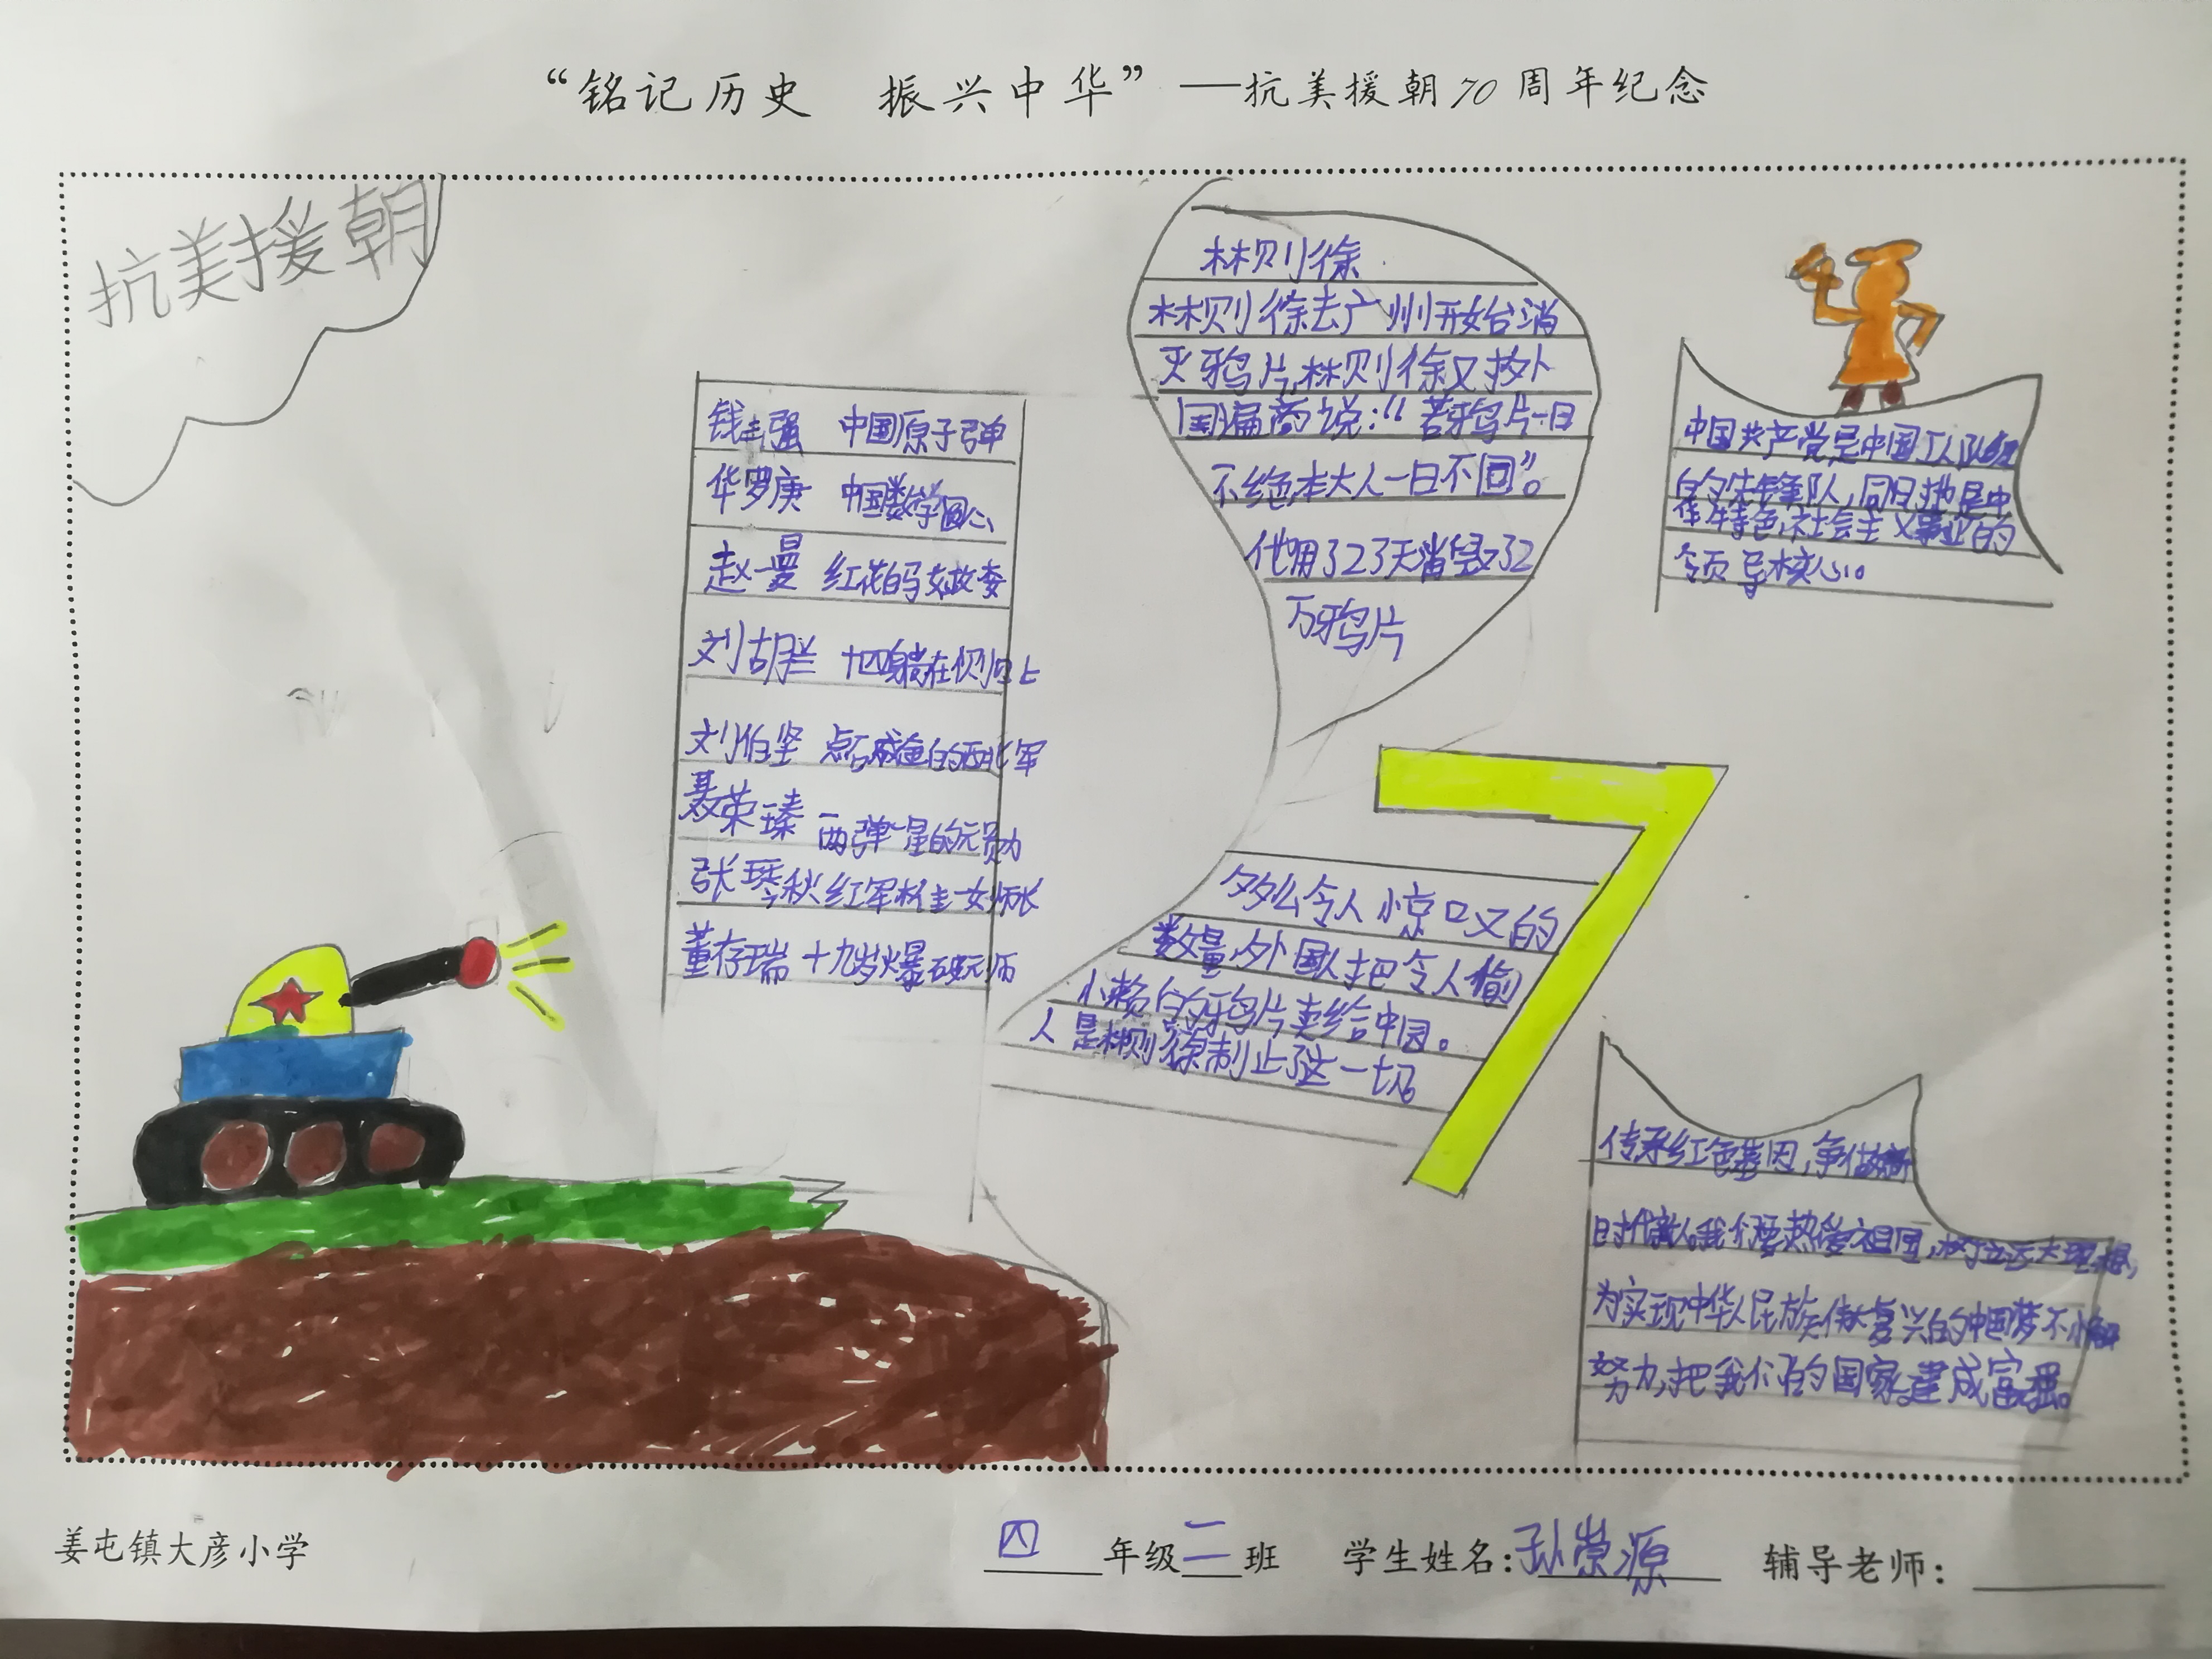 “铭记历史 振兴中华”——抗美援朝70周年纪念
抗美援朝
钱三强 中国原子弹
华罗庚 中国数学
赵一曼 红 白马女政委
刘胡兰 十四 躺在 上
刘伯坚 点石成 的西北军
聂荣臻 两弹一星的元勋
张琴秋 红军 女师长
董存瑞 十九岁爆破 师
林则徐
林则徐去广州开始消
灭鸦片,林则徐又 外
国 商说:“若鸦片一日
不绝本大人一日不回”。
他用了23天消毁了2
万鸦片
多么令人惊叹的
数量,外国人把令人
懒的鸦片卖给中国
人。是林则徐制止了这一切
中国共产党是中国工人
的先锋队,同时 是中
特色社会主义事业的
领导核心。
传承红色基因,争做新
时代新人。我们要热爱祖国,树立远大理想,
为实现中华人民族伟大复兴的中国梦不懈
努力,把我们的国家建成富强。
姜屯镇大彦小学
四年级二班 学生姓名:孙崇源 辅导老师: